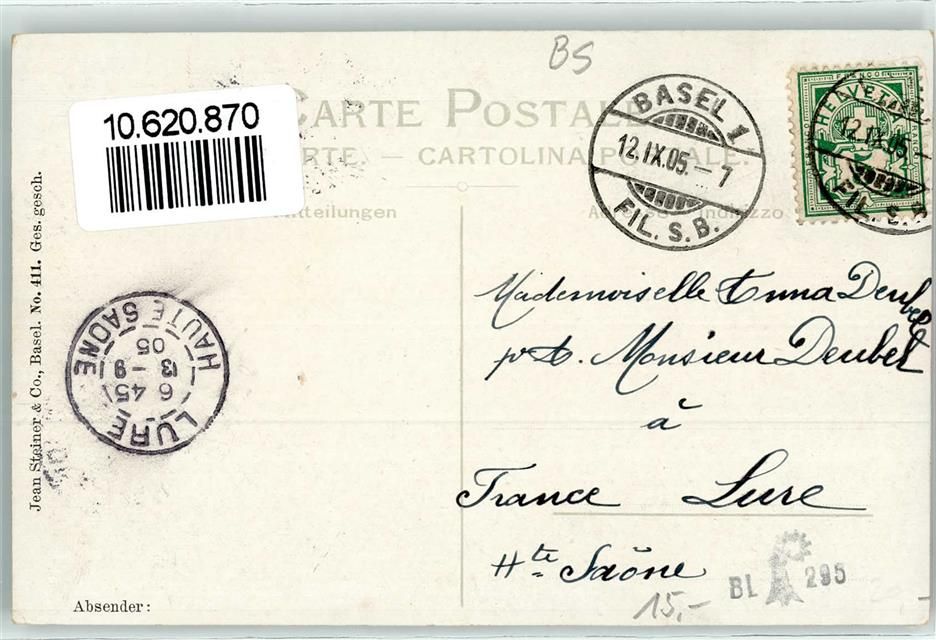 BS
10.620.870
CARTE POSTALE
RTE. — CARTOLINA POSTALE.
Mitteilungen
Adresse Indirizzo
BASEL 1
12.IX.05.–7
FIL. S. B.
FRANCO
HELVETIA
12.IX.05.
FIL. S. B.
Jean Steiner & Co., Basel. No. 411. Ges. gesch.
LURE
6 45
13 - 9
05
HAUTE SAONE
Mademoiselle Emma Deubel
Monsieur Deubel
à
France Lure
Hte Saône
BL 295
15,-
Absender: